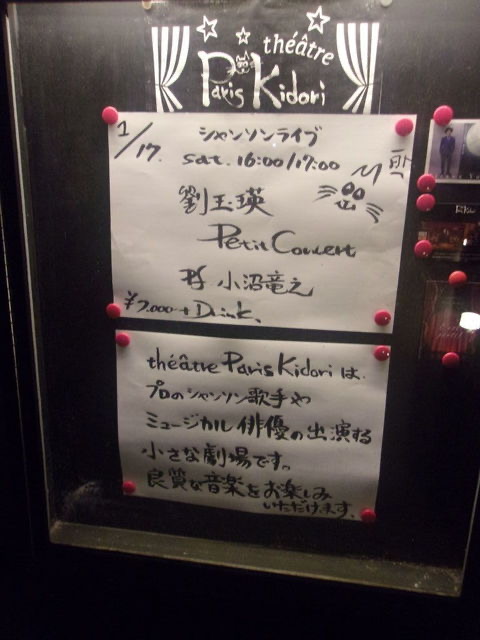 théâtre
Paris Kidori
1/17.
シャンソンライブ
sat. 16:00/17:00
劉玉瑛
Petit Concert
小沼竜之
+ Drink.
théâtre Paris Kidori は
プロのシャンソン歌手や
ミュージカル俳優の出演する
小さな劇場です。
良質な音楽をお楽しみ
いただけます。